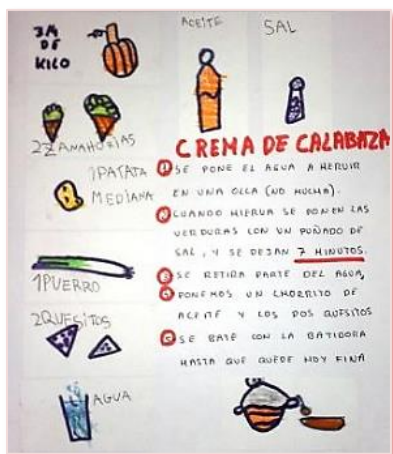 3/4
DE
KILO
ACEITE
SAL
2 ZANAHORIAS
1 PATATA
MEDIANA
1 PUERRO
2 QUESITOS
AGUA
CREMA DE CALABAZA
1 SE PONE EL AGUA A HERVIR
EN UNA OLLA (NO MUCHA).
2 CUANDO HIERVA SE PONEN LAS
VERDURAS CON UN PUÑADO DE
SAL, Y SE DEJAN 7 MINUTOS.
3 SE RETIRA PARTE DEL AGUA,
4 PONEMOS UN CHORRITO DE
ACEITE Y LOS DOS QUESITOS
5 SE BATE CON LA BATIDORA
HASTA QUE QUEDE MUY FINA